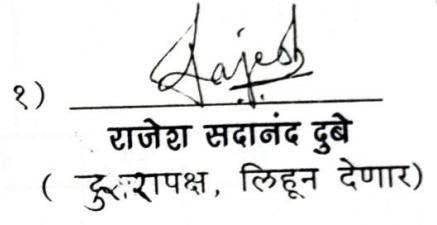 १) Rajesh
राजेश सदानंद दुबे
( दुसरापक्ष, लिहून देणार)